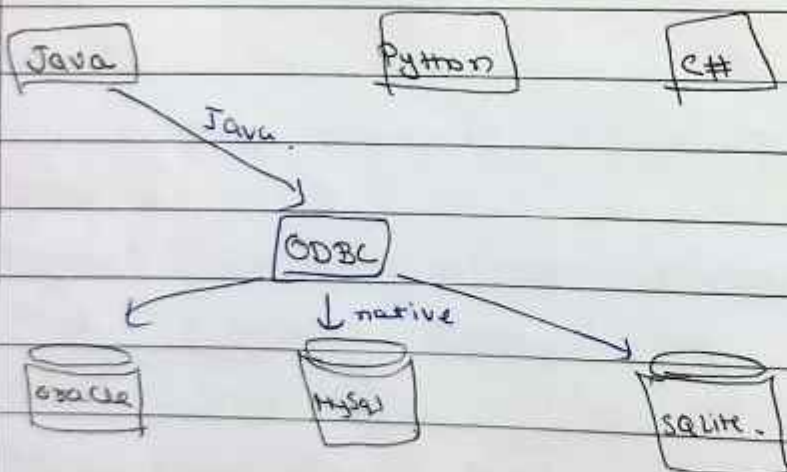 Java Python C#
Java.
ODBC
native
Oracle MySql SQLite.